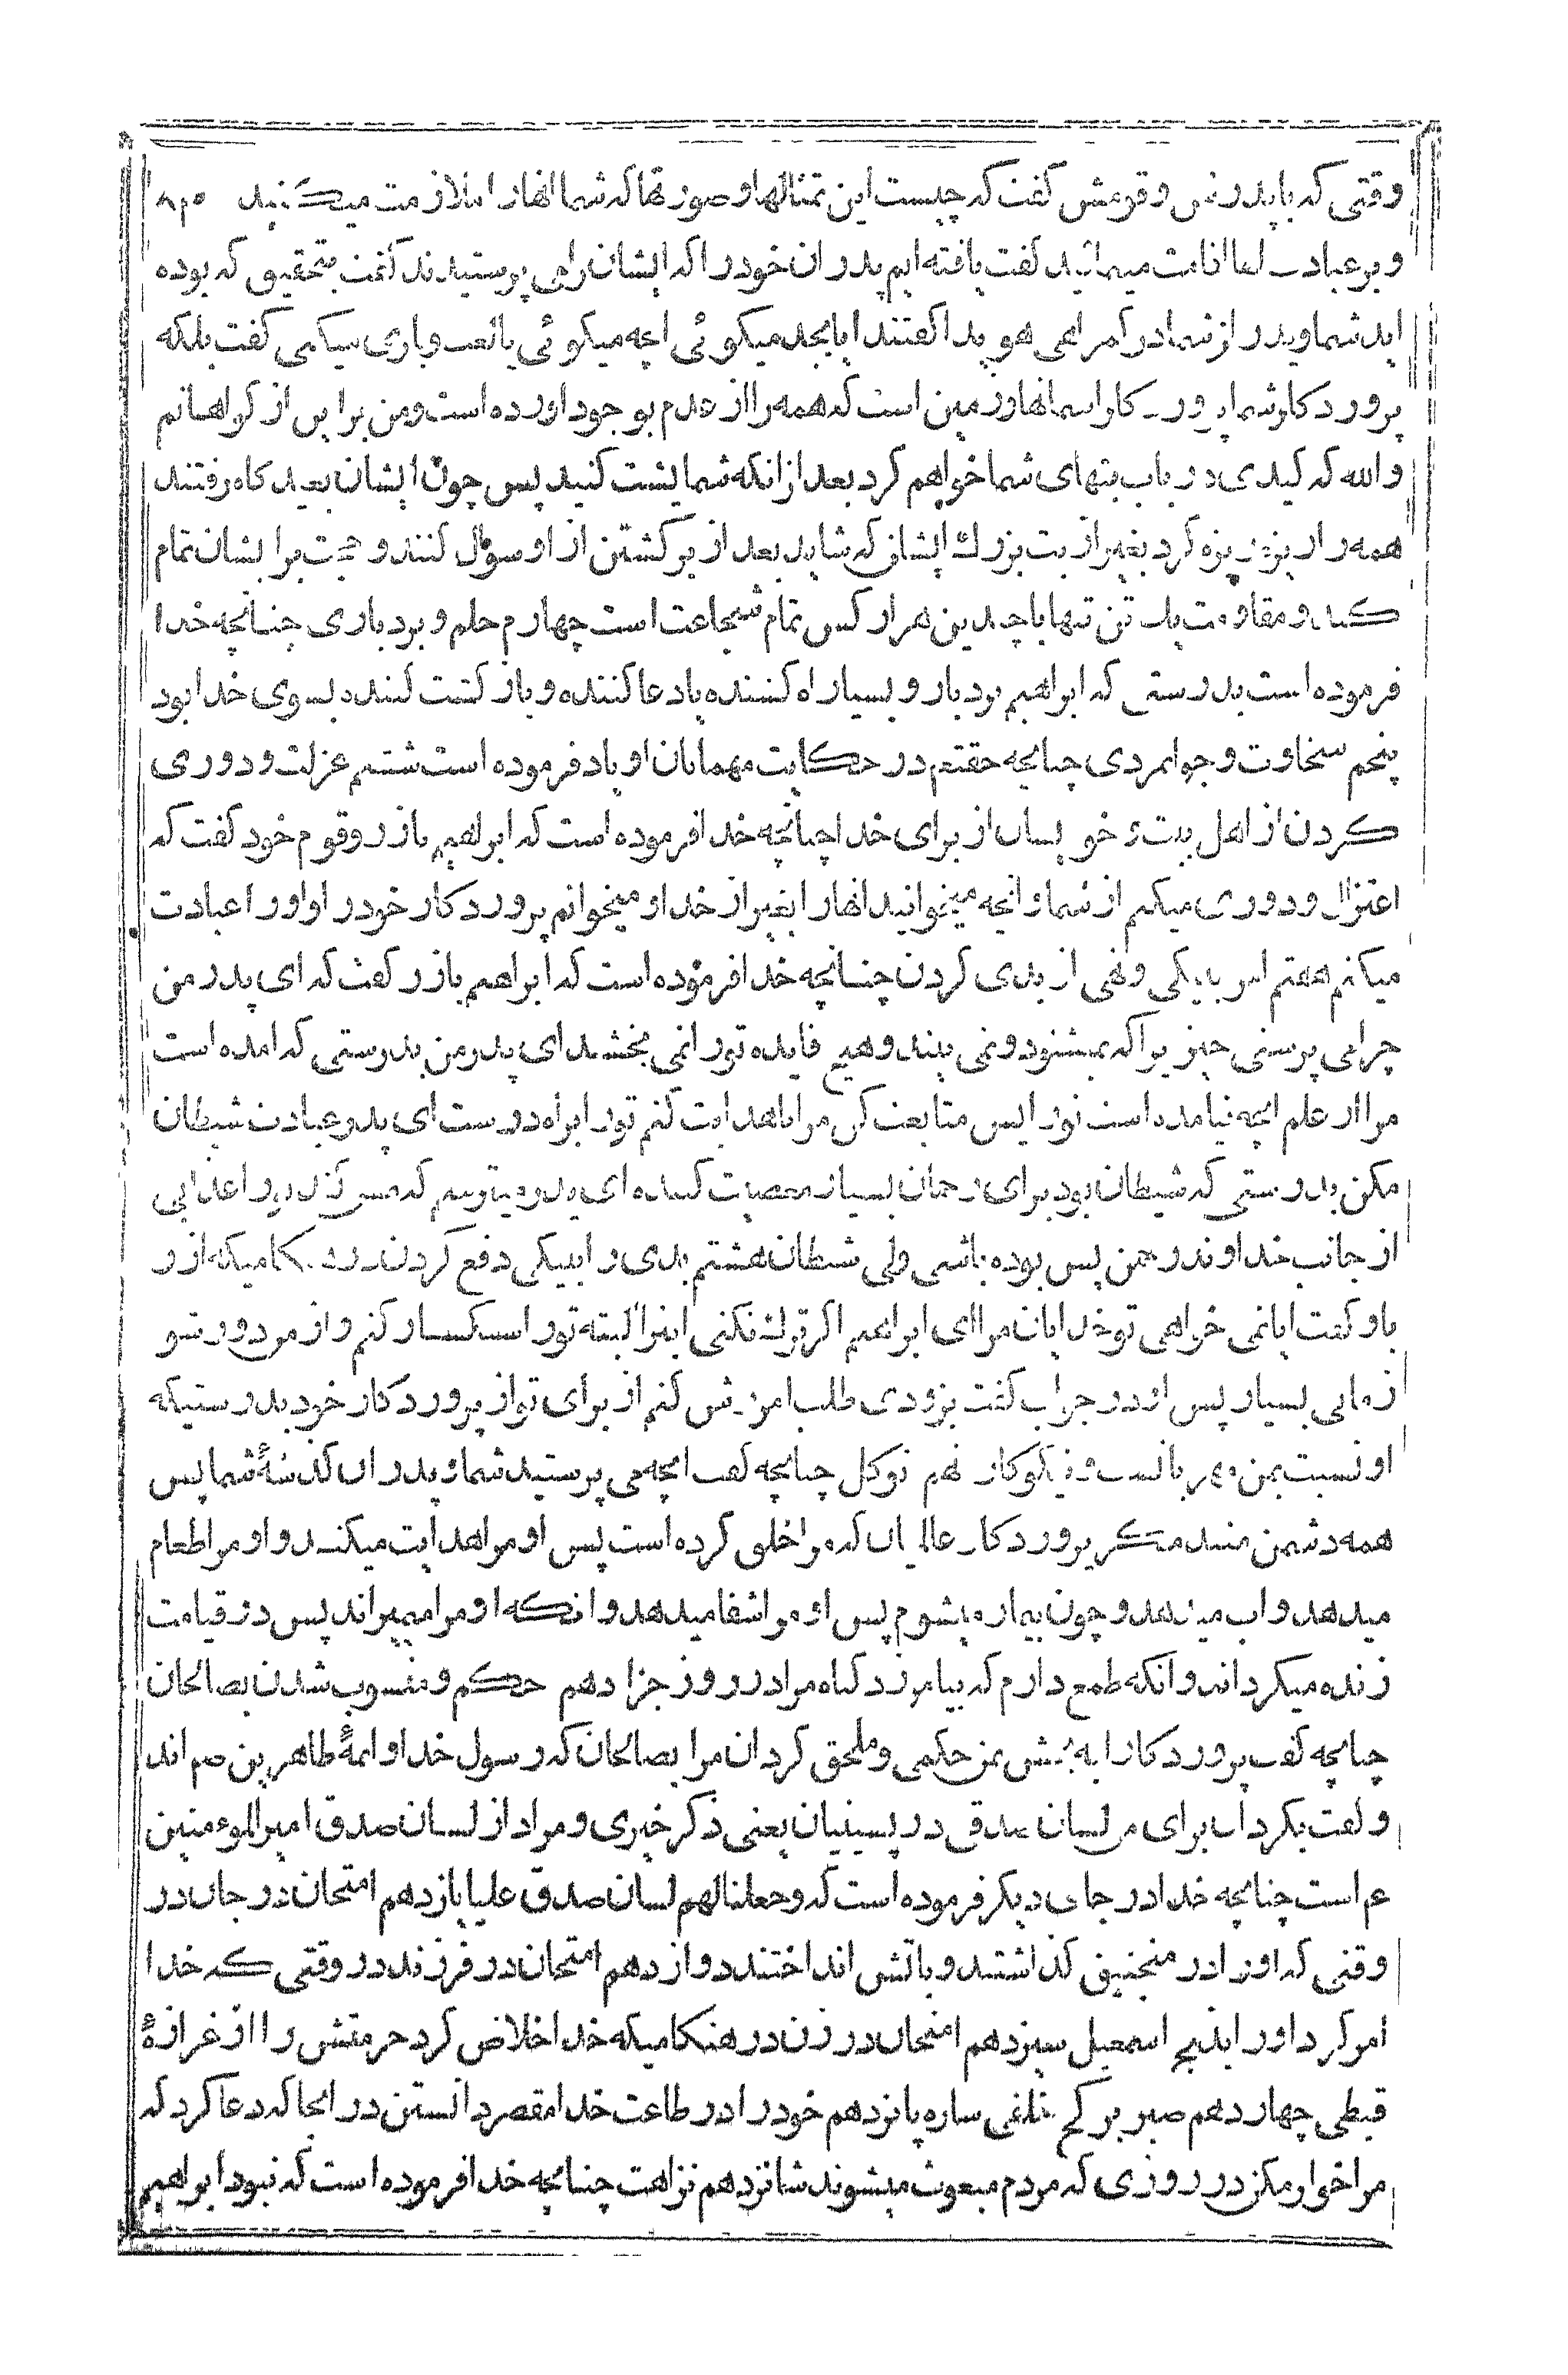 وقتی که با پدرش و قومش کفت که چیست این تمثالها و صورتها که شما انها را ملازمت میکنید
و بر عبادت انها اقامت مینمائید کفت یافته ایم پدران خود را که ایشان را می پرستیدند کفت بتحقیق که بوده
اید شما و پدران شما در کمراهی هویدا کفتند ایا بجد میکوئی انچه میکوئی یا لعب و بازی میکنی کفت بلکه
پرورد کار شما پرورد کار اسمانها و زمین است که همه را از عدم بوجود اورده است و من بر این از کواهانم
و الله که کیدی در باب بتهای شما خواهم کرد بعد از انکه شما پشت کنید پس چون ایشان بعید کاه رفتند
همه را ریزه ریزه کرد بغیر از بت بزرك ایشان که شاید بعد از بر کشتن از او سؤال کنند و حجت بر ایشان تمام
کند و مقاومت یك تن تنها با چندین هزار کس تمام شجاعت است چهارم حلم و بردباری چنانچه خدا
فرموده است بدرستی که ابراهیم بردبار و بسیار اه کننده یا دعا کننده و باز کشت کننده بسوی خدا بود
پنجم سخاوت و جوانمردی چنانچه حقتعم در حکایت مهمانان او یاد فرموده است ششم عزلت و دوری
کردن از اهل بیت و خویشان از برای خدا چنانچه خدا فرموده است که ابراهیم بازر و قوم خود کفت که
اعتزال و دوری میکنم از شما و انچه میخوانید انها را بغیر از خدا و میخوانم پروردکار خود را و اورا عبادت
میکنم هفتم امر بنیکی و نهی از بدی کردن چنانچه خدا فرموده است که ابراهیم بازر کفت که ای پدر من
چرا می پرستی چیزیرا که نمیشنود و نمی بیند و هیچ فایده تورا نمی بخشد ای پدر من بدرستی که امده است
مرا از علم انچه نیامده است تورا پس متابعت کن مرا تا هدایت کنم تورا براه درست ای پدر عبادت شیطان
مکن بدرستی که شیطان بود برای رحمان بسیار معصیت کننده ای پدر میترسم که مس کند تورا عذابی
از جانب خداوند رحمن پس بوده باشی ولی شیطان هشتم بدی را بنیکی دفع کردن در هنکامیکه ازر
باو کفت ایا نمی خواهی تو خدایان مرا ای ابراهیم اکر ترك نکنی اینرا البته تورا سنکسار کنم و از من دور شو
زمانی بسیار پس او در جواب کفت بزودی طلب امرزش کنم از برای تو از پروردکار خود بدرستیکه
او نسبت بمن مهربانست و نیکوکار نهم توکل چنانچه کفت انچه می پرستید شما و پدران کذشتۀ شما پس
همه دشمن منند مکر پروردکار عالمیان که مرا خلق کرده است پس او مرا هدایت میکند و او مرا طعام
میدهد و اب میدهد و چون بیمار میشوم پس او مرا شفا میدهد و انکه او مرا میمیراند پس در قیامت
زنده میکرداند و انکه طمع دارم که بیامرزد کناه مرا در روز جزا دهم حکم و منسوب شدن بصالحان
چنانچه کفت پروردکارا به بخش بمن حکمی و ملحق کردان مرا بصالحان که رسول خدا و ائمۀ طاهرین صم اند
و کفت بکردان برای من لسان صدقی در پسینیان یعنی ذکر خیری و مراد از لسان صدق امیر الموءمنین
عم است چنانچه خدا در جای دیکر فرموده است که و جعلنا لهم لسان صدق علیا یازدهم امتحان در جان در
وقتی که اورا در منجنیق کذاشتند و باتش انداختند دوازدهم امتحان در فرزند در وقتی که خدا
امر کرد اورا بذبح اسمعیل سیزدهم امتحان در زن در هنکامیکه خدا خلاص کرد حرمتش را از غرازۀ
قبطی چهاردهم صبر بر کج خلقی ساره پانزدهم خود را در طاعت خدا مقصر دانستن در انجا که دعا کرد که
مرا خوار مکن در روزی که مردم مبعوث میشوند شانزدهم نزاهت چنانچه خدا فرموده است که نبود ابراهیم